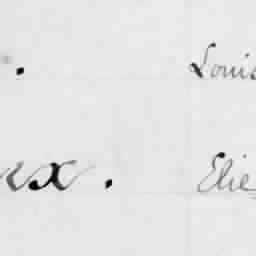 . Louis
ux. Elie